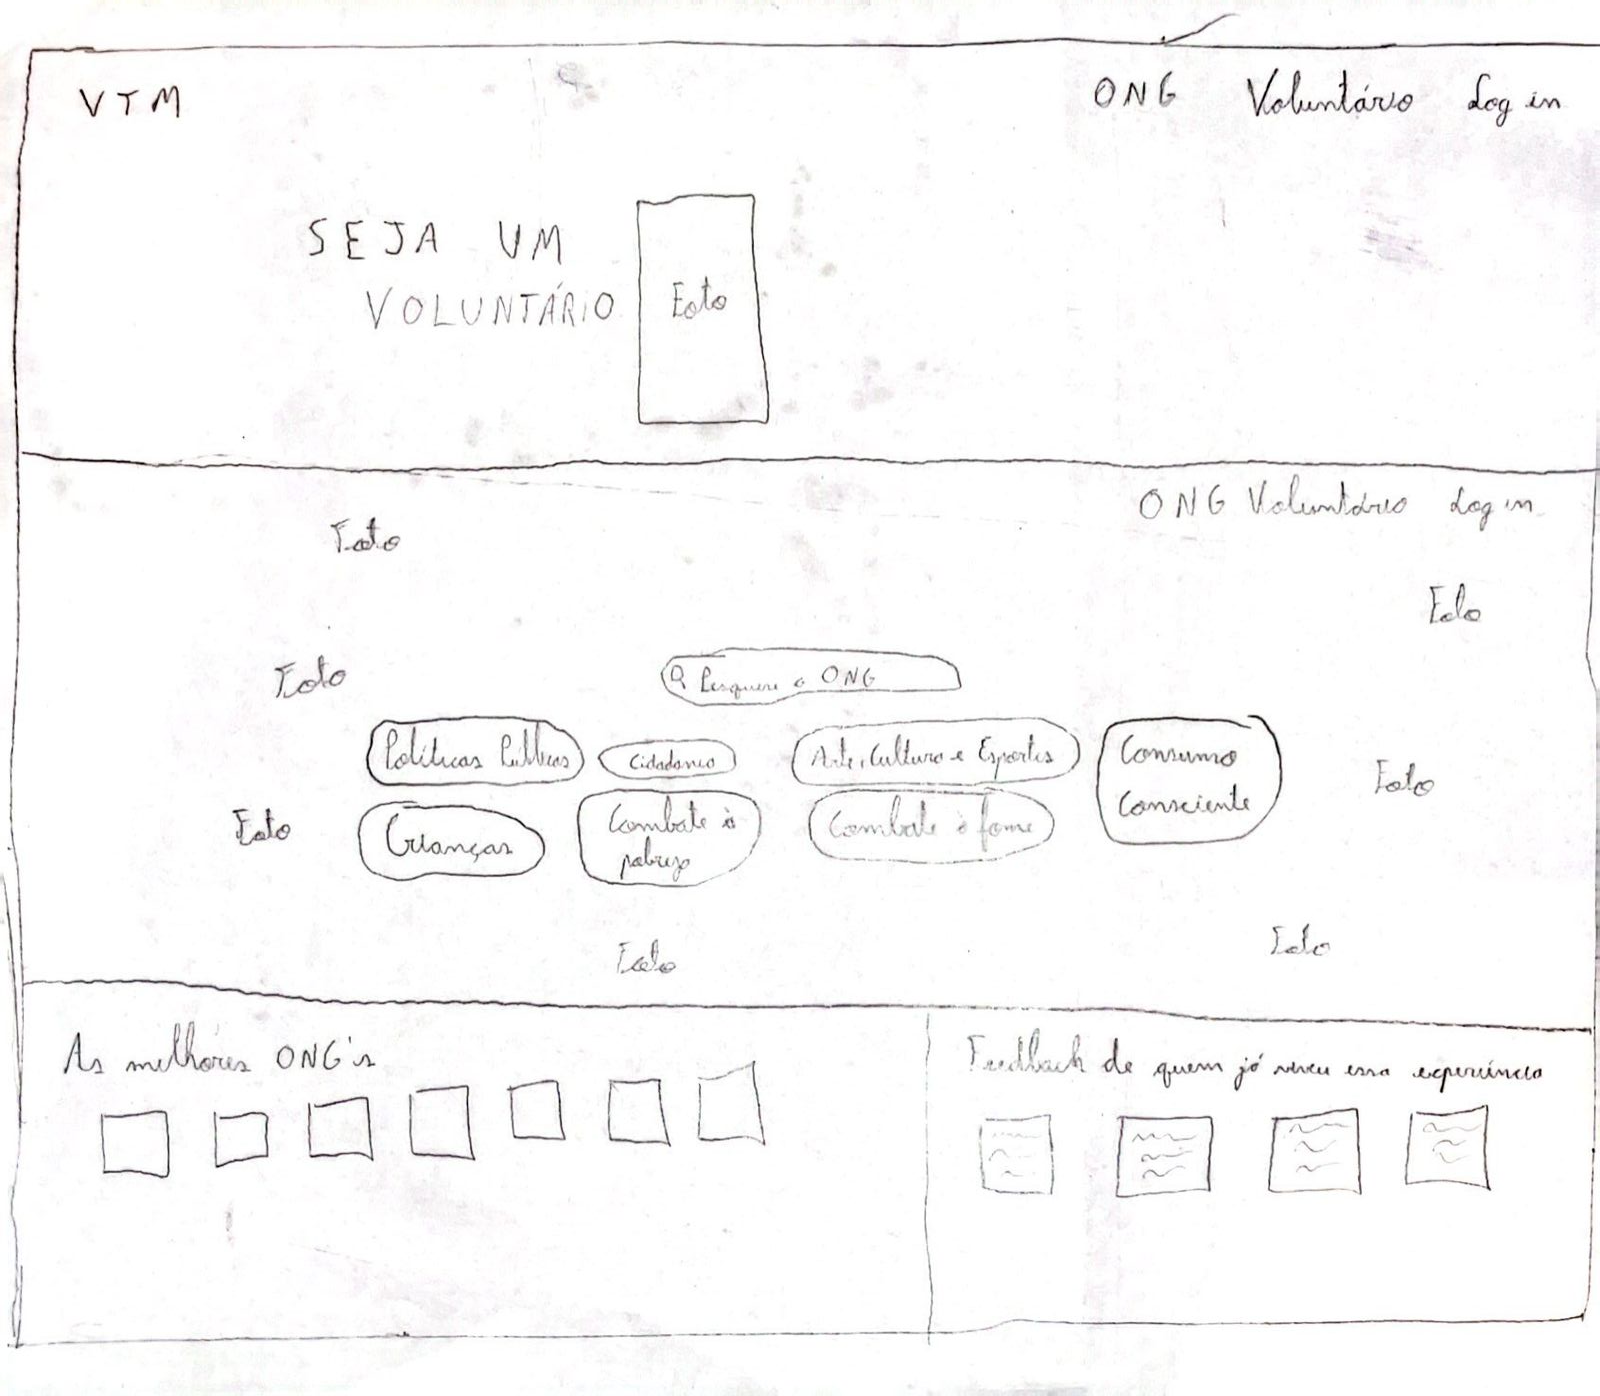 VTM
ONG Voluntário Log in
SEJA UM
VOLUNTÁRIO
Foto
ONG Voluntário Log in
Foto
Foto
Foto
Pesquise a ONG
Políticas Públicas
Cidadania
Arte, Cultura e Esportes
Consumo
Consciente
Foto
Foto
Crianças
Combate à
pobreza
Combate à fome
Foto
Foto
As melhores ONG's
Feedback de quem já viveu essa experiência